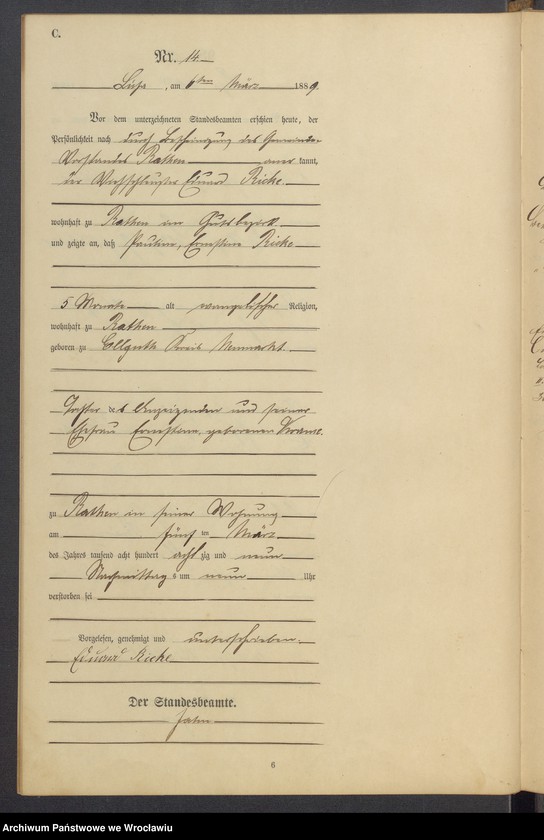 C.
Nr. 14.
Lissa, am 6ten März 1889.
Vor dem unterzeichneten Standesbeamten erschien heute, der
Persönlichkeit nach durch Bescheinigung des Gemeinde-
Vorstandes Rathen anerkannt,
der Eduard Ricke
wohnhaft zu Rathen im Gutsbezirk
und zeigte an, daß Pauline, Ernstine Ricke
5 Monate alt evangelischer Religion,
wohnhaft zu Rathen
geboren zu Ellguth Kreis Neumarkt
Tochter des Anzeigenden und seiner
Ehefrau Ernstine, geborenen
zu Rathen in seiner Wohnung
am fünften März
des Jahres tausend acht hundert achtzig und neun
Nachmittags um neun Uhr
verstorben sei
Vorgelesen, genehmigt und unterschrieben.
Eduard Ricke
Der Standesbeamte.
Jahn
6
Archiwum Państwowe we Wrocławiu